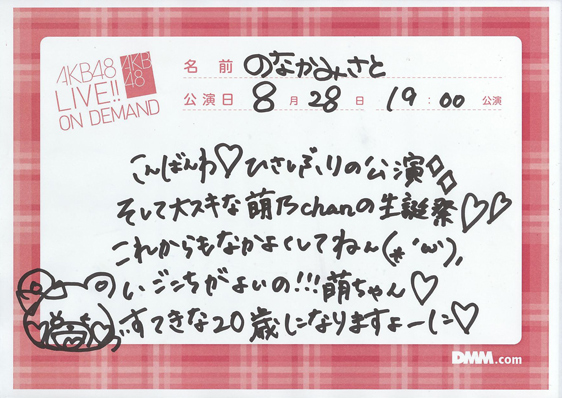 AKB48
LIVE!!
ON DEMAND
AKB
48
名前 のなかみさと
公演日 8月28日 19:00 公演
こんばんわ♡ひさしぶりの公演◇◇
そして大スキな萌乃chanの生誕祭♡♡
これからもなかよくしてねん(*'ω'),
いごこちがよいの!!!萌ちゃん♡
すてきな20歳になりますよーに♡
DMM.com